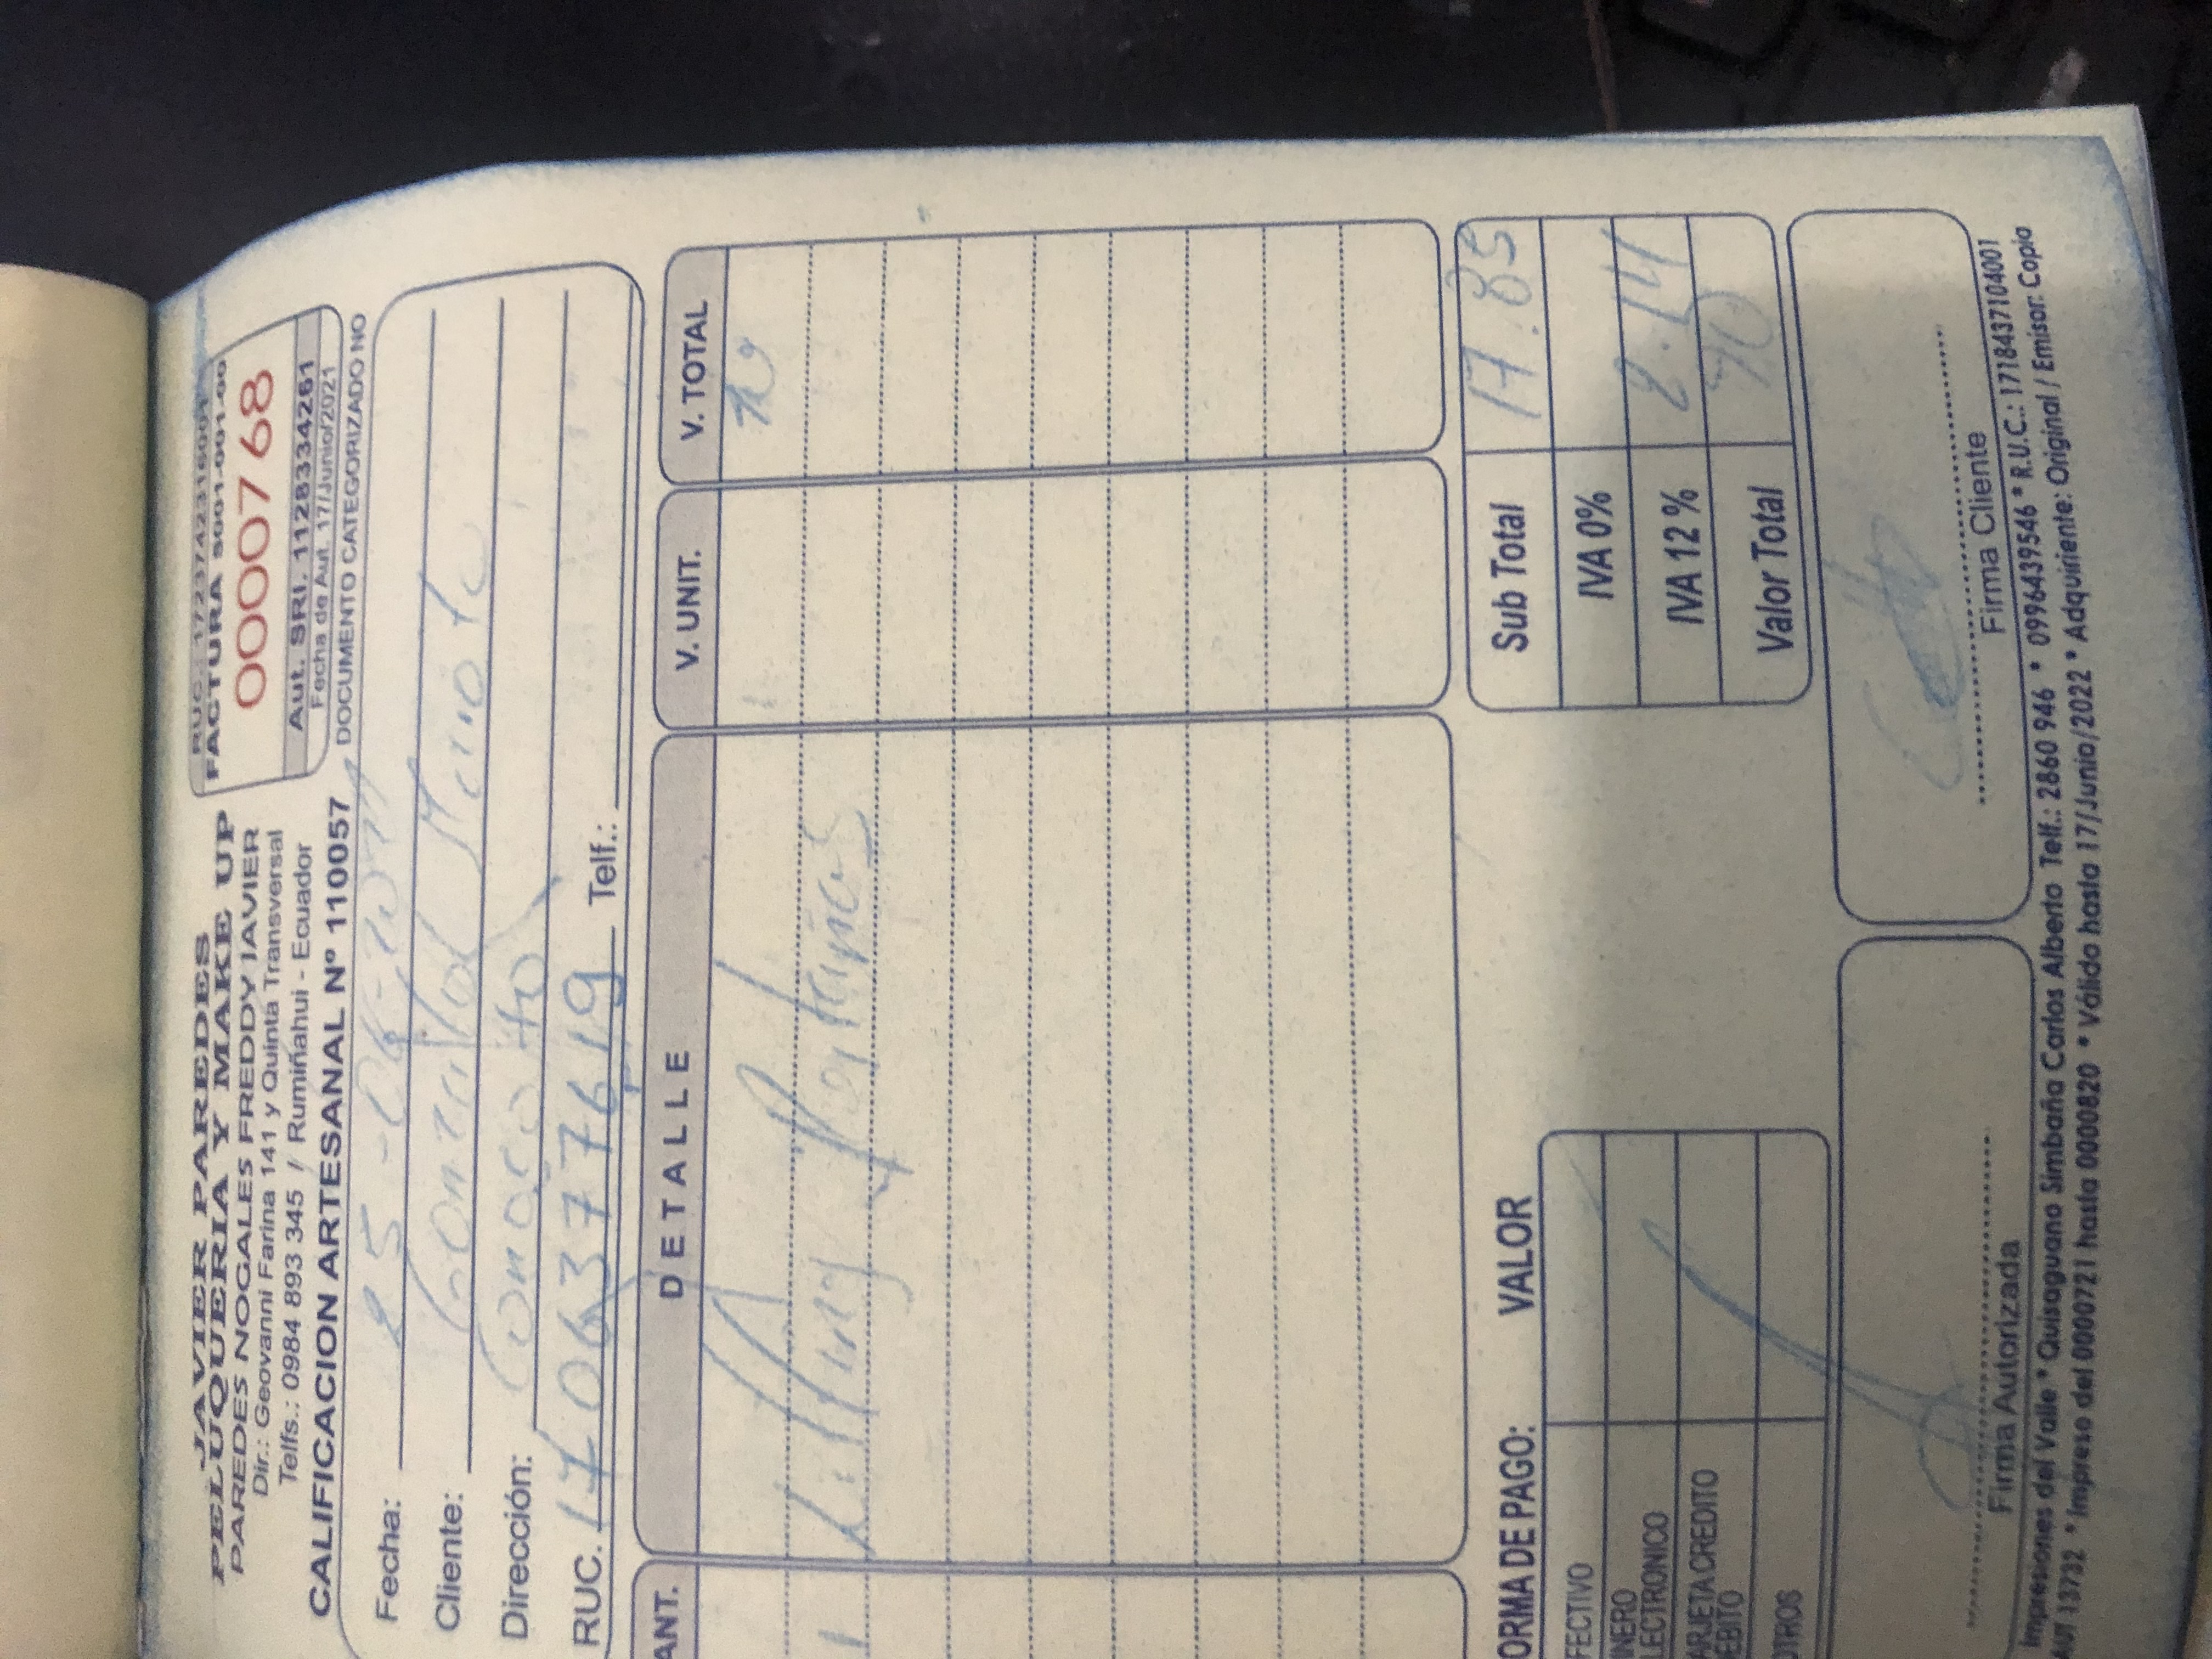 JAVIER PAREDES
PELUQUERIA Y MAKE UP
PAREDES NOGALES FREDDY JAVIER
Dir.: Geovanni Farina 141 y Quinta Transversal
Telfs.: 0984 893 345 / Rumiñahui - Ecuador
CALIFICACION ARTESANAL Nº 110057
RUC.: 1723742316001
FACTURA S001-001-00
0000768
Aut. SRI. 1128334261
Fecha de Aut. 17/Junio/2021
DOCUMENTO CATEGORIZADO NO
Fecha: 25-06-2021
Cliente:
Dirección: Conocoto
RUC. 1706377619 Telf.:
ANT. DETALLE V. UNIT. V. TOTAL
1 Lifting Pestañas
ORMA DE PAGO: VALOR
FECTIVO
INERO
LECTRONICO
ARJETA CREDITO
DEBITO
OTROS
Sub Total 17.85
IVA 0%
IVA 12 % 2.14
Valor Total
Firma Autorizada
Firma Cliente
Impresiones del Valle * Quisaguano Simbaña Carlos Alberto Telf.: 2860 946 * 0996439546 * R.U.C.: 1718437104001
AUT 13732 * Impreso del 0000721 hasta 0000820 * Válido hasta 17/Junio/2022 * Adquiriente: Original / Emisor: Copia